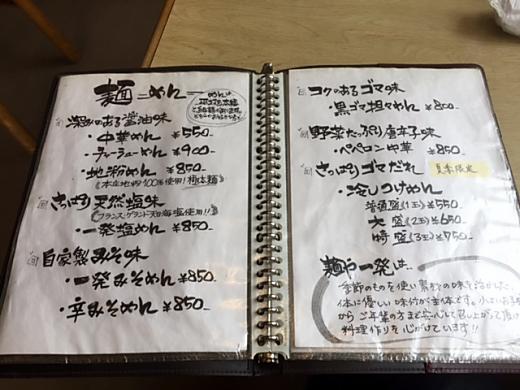 麺 ーめんー
めんは
深みのある醤油味
・中華めん ¥550-
・チャーシューめん ¥900-
・地粉めん ¥850-
さっぱり天然塩味
・一発塩めん ¥850-
自家製みそ味
・一発みそめん ¥850-
・辛みそめん ¥850-
コクのあるゴマ味
・黒ゴマ担々めん ¥800-
野菜たっぷり唐辛子味
・ペペロン中華 ¥850
さっぱりゴマだれ 夏季限定
・冷しつけめん
普通盛(1玉) ¥550
大盛(2玉) ¥650
特盛(3玉) ¥750
麺や一発は…
季節のものを使い素材の味を活かした、
体に優しい味付が主体です。小さいお子様
から ご年輩の方まで安心して召し上がって頂ける
料理作りを心がけています!!